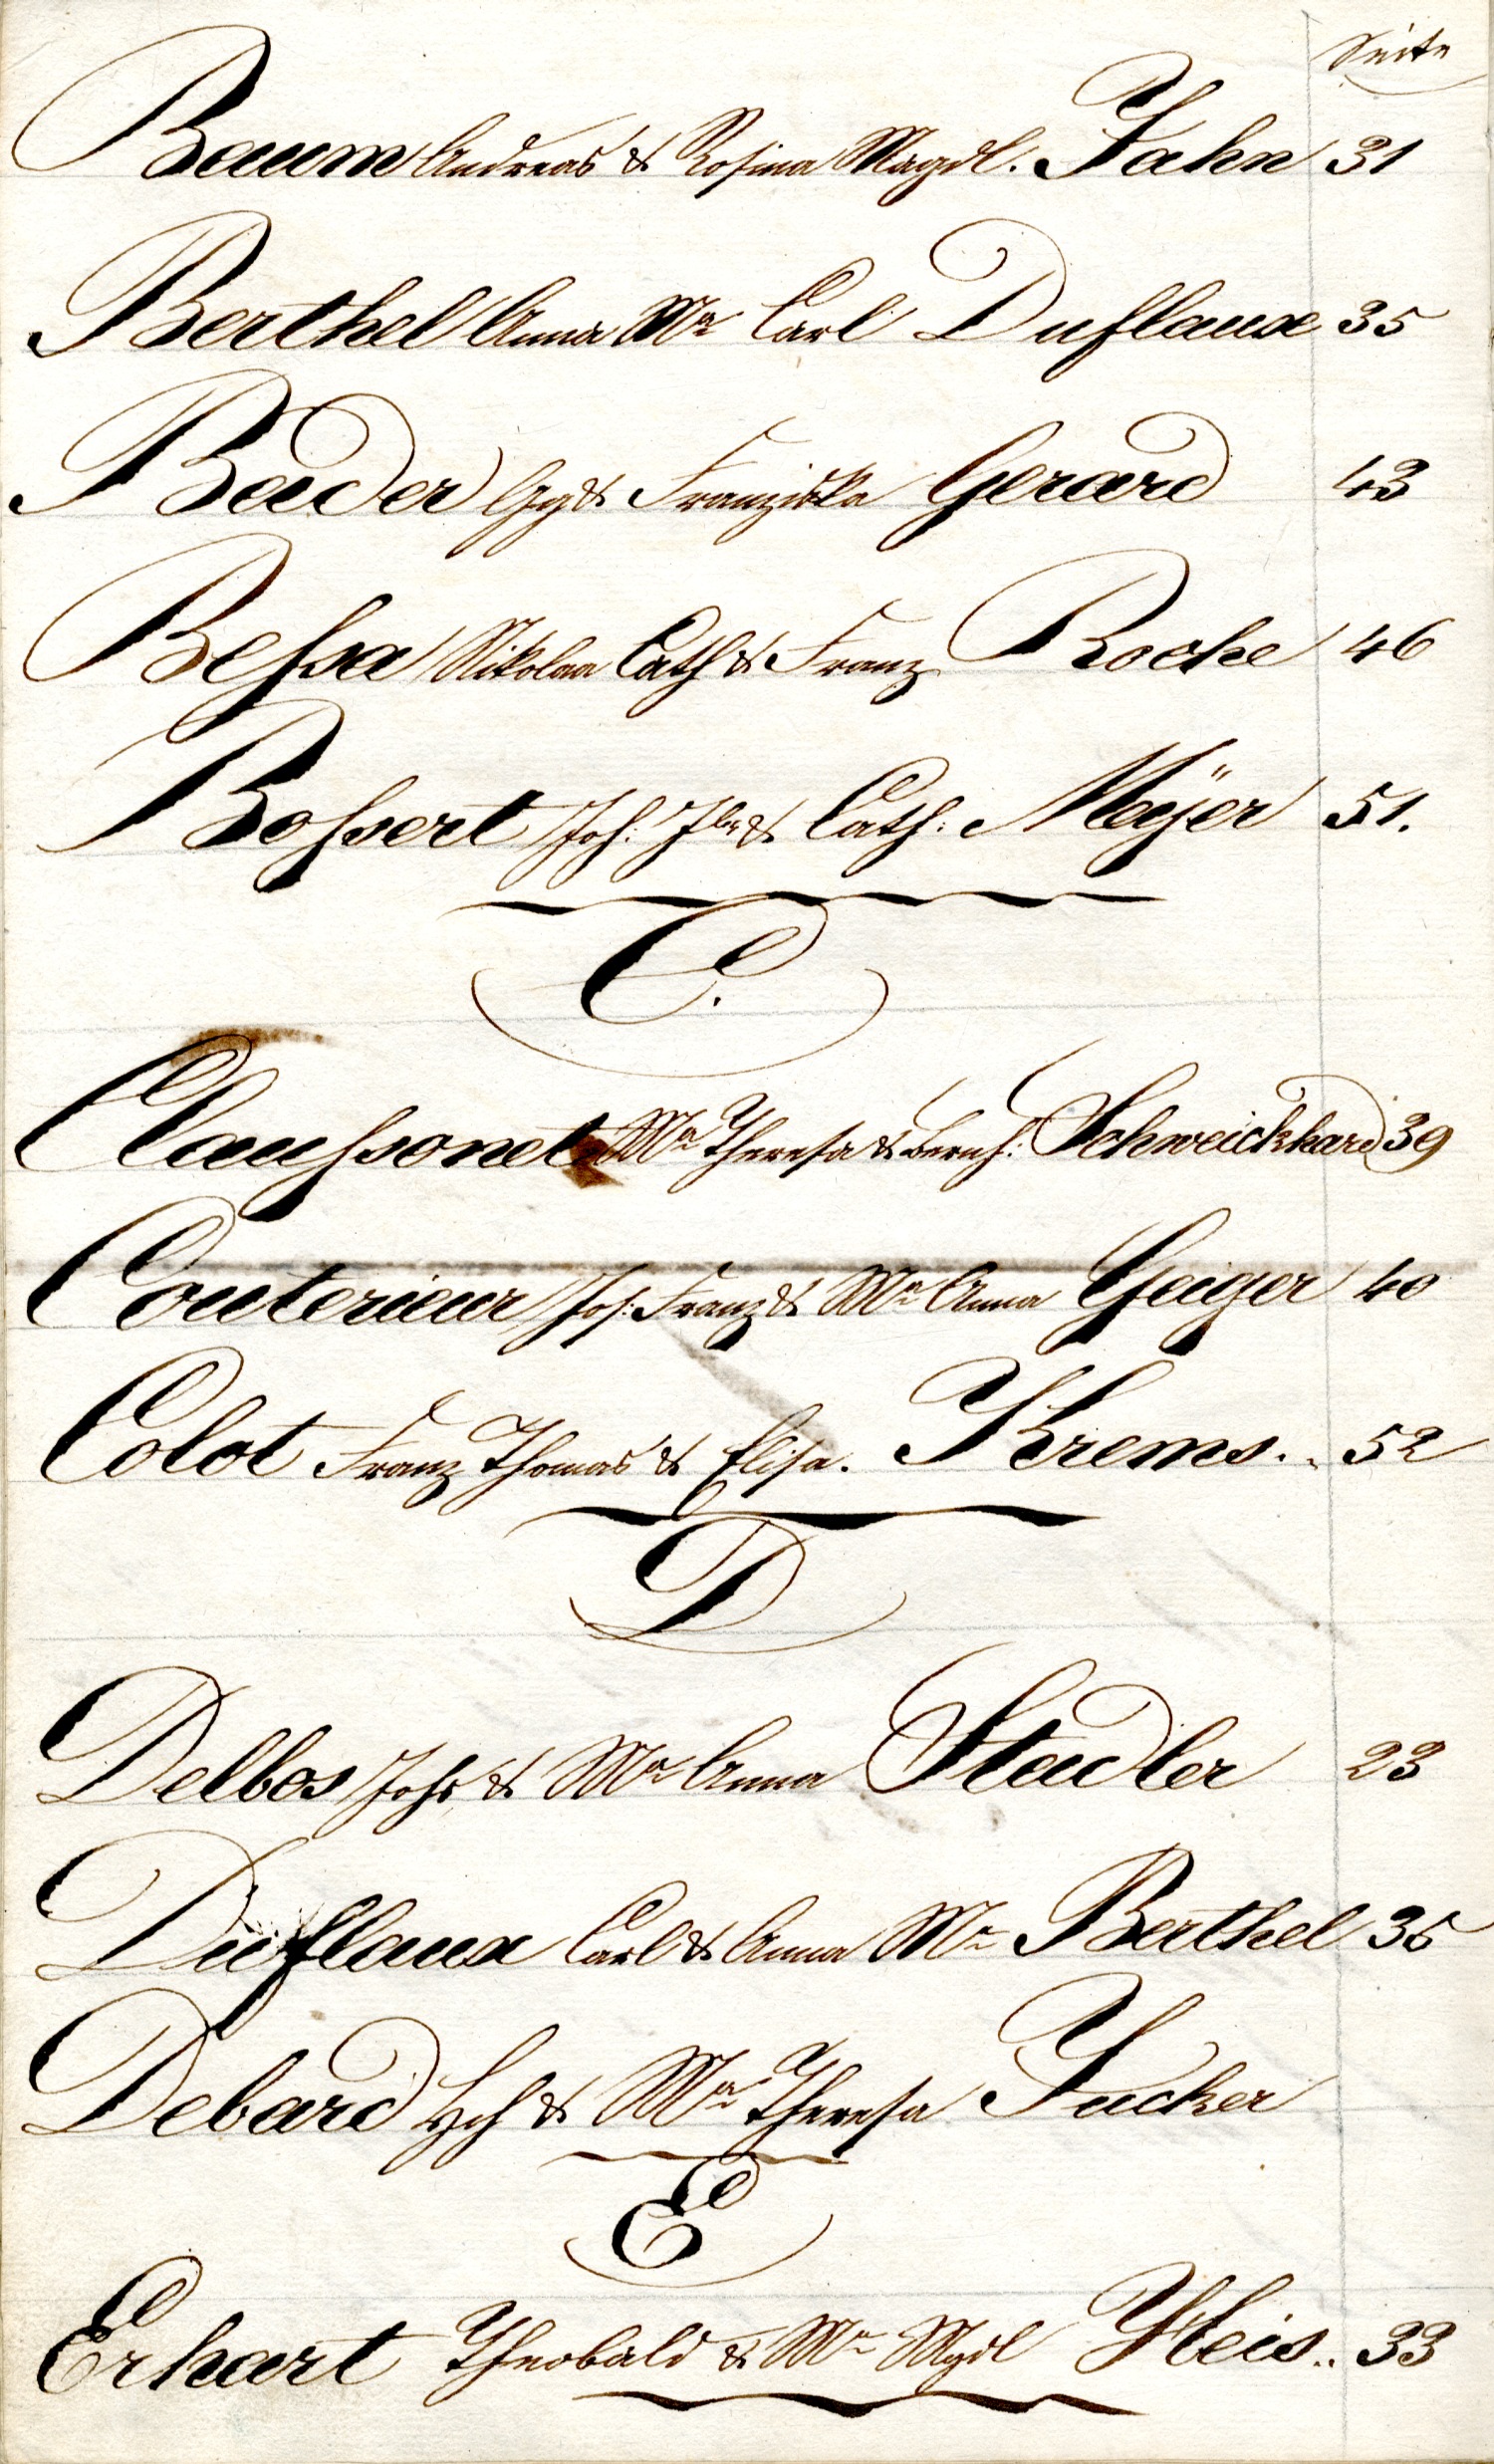 Seite
Baum Andreas & Rosina Magdl. Jahn 31
Berthel Anna Ma Carl Duflaux 35
Bender Gg & Franziska Gerard 43
Beßa Nikolaa Cath & Franz Roche 46
Boßert Joh. & Cath: Meÿer 51.
C.
Claußonet Ma Theresa & Bernh: Schweickhard 39
Couterieur Jos: Franz & Ma Anna Geiger 40
Colot Franz Thomas & Elisa. Krems.. 52
D
Delbos Johs & Ma Anna Stadler 23
Duflaux Carl & Anna Ma Berthel 35
Debard Hch & Ma Theresa Jucker
E
Erhart Theobald & Ma Mgdl Heis.. 33